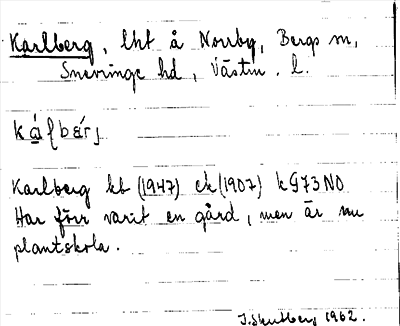 Karlberg, lht å Norrby, Bergs sn,
Snevringe hd, Västm. l.
Karlberg kb (1947) ek (1907) k G73 NO
Har förr varit en gård, men är nu
plantskola.
1962.